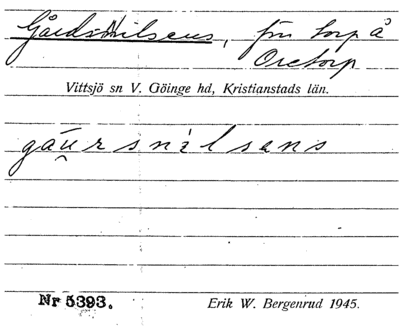 GårdsNilsens, fru torp å
Oretorp
Vittsjö sn V. Göinge hd, Kristianstads län.
gäu̯rsnilsens
Nr 5393.
Erik W. Bergenrud 1945.